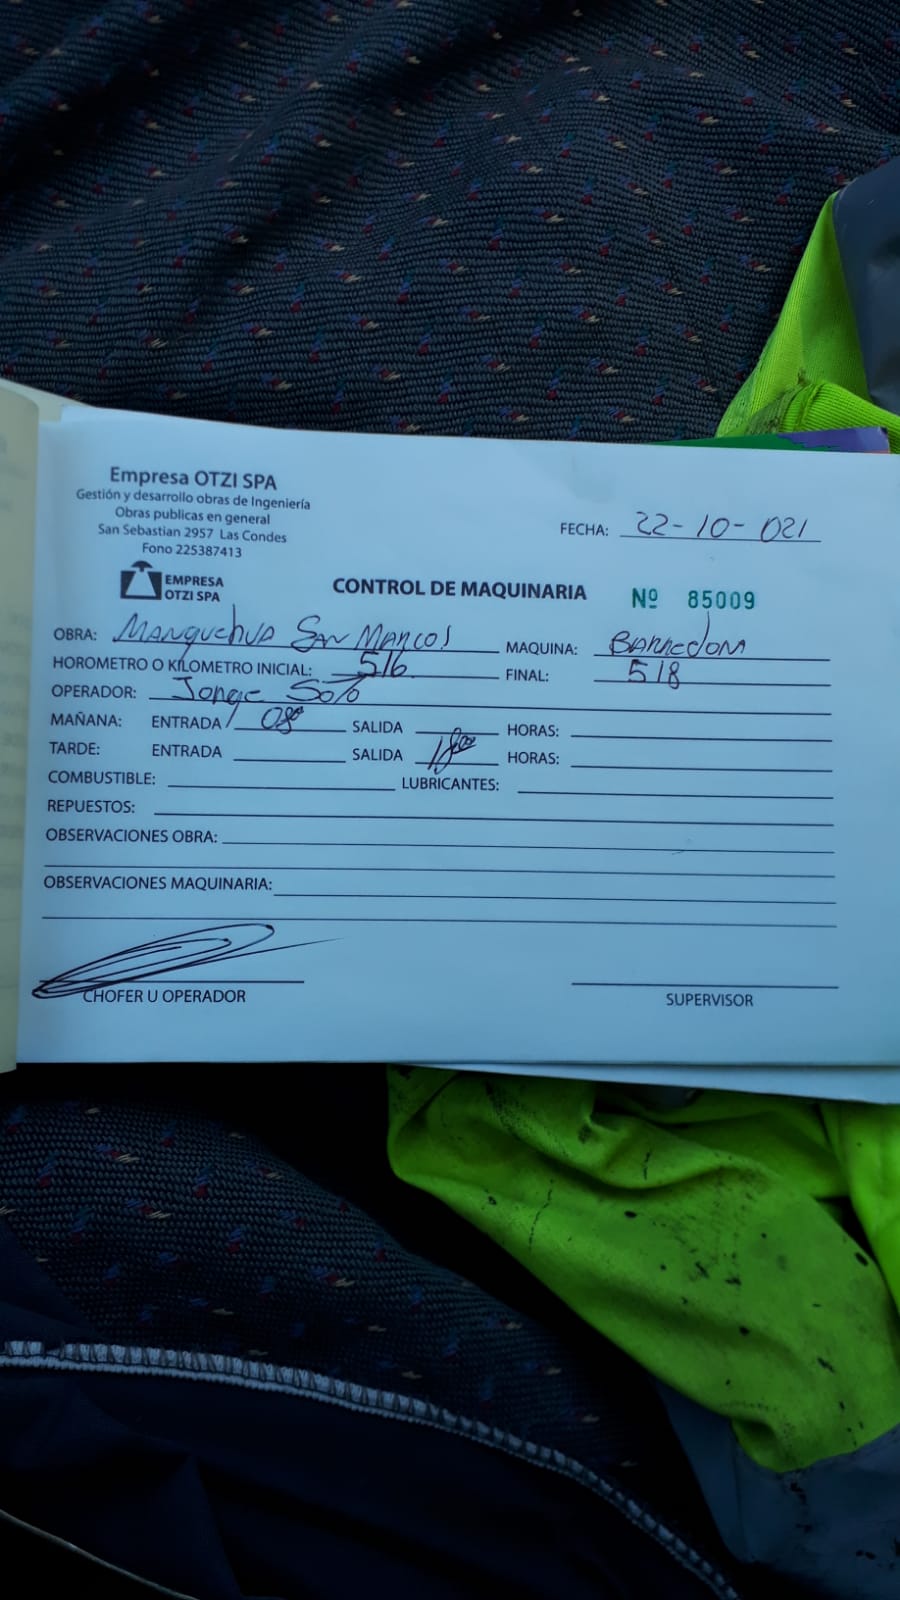 Empresa OTZI SPA
Gestión y desarrollo obras de Ingeniería
Obras publicas en general
San Sebastian 2957 Las Condes
Fono 225387413
EMPRESA
OTZI SPA
FECHA: 22-10-021
CONTROL DE MAQUINARIA Nº 85009
OBRA: Manquehua San Marcos MAQUINA: Barredora
HOROMETRO O KILOMETRO INICIAL: 516 FINAL: 518
OPERADOR: Jorge Soto
MAÑANA: ENTRADA 08⁰⁰ SALIDA HORAS:
TARDE: ENTRADA SALIDA 18⁰⁰ HORAS:
COMBUSTIBLE: LUBRICANTES:
REPUESTOS:
OBSERVACIONES OBRA:
OBSERVACIONES MAQUINARIA:
CHOFER U OPERADOR SUPERVISOR